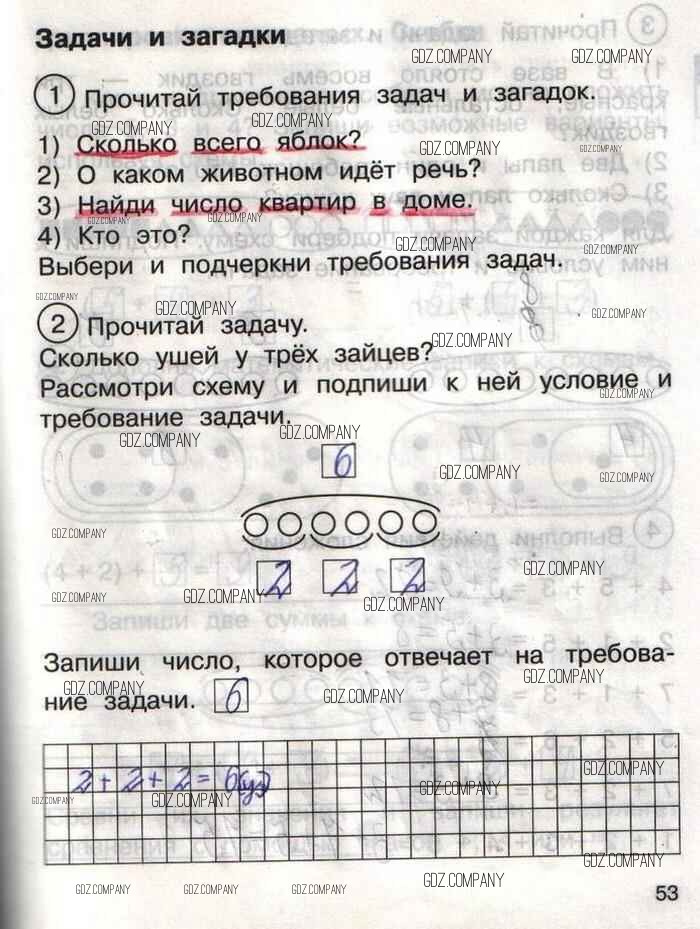 Задачи и загадки
1 Прочитай требования задач и загадок.
1) Сколько всего яблок?
2) О каком животном идёт речь?
3) Найди число квартир в доме.
4) Кто это?
Выбери и подчеркни требования задач.
2 Прочитай задачу.
Сколько ушей у трёх зайцев?
Рассмотри схему и подпиши к ней условие и
требование задачи.
6
2 2 2
Запиши число, которое отвечает на требова-
ние задачи. 6
2 + 2 + 2 = 6 (у)
53
GDZ.COMPANY